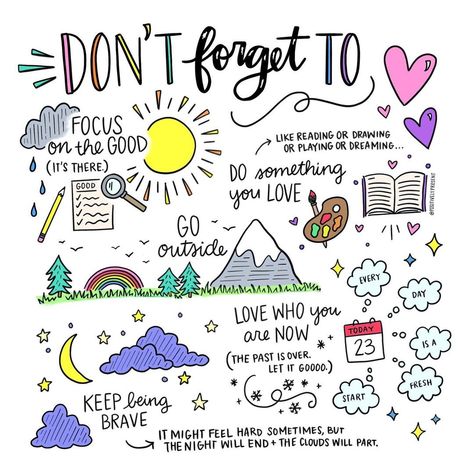 DON'T forget TO
FOCUS
on the GOOD
(IT'S THERE.)
GOOD
LIKE READING OR DRAWING
OR PLAYING OR DREAMING...
DO something
you LOVE
@POSITIVELYPRESENT
GO
outside
LOVE WHO you
are NOW
(THE PAST IS OVER.
LET IT GOOOO.)
EVERY
DAY
TODAY
23
IS A
FRESH
START
KEEP being
BRAVE
IT MIGHT FEEL HARD SOMETIMES, BUT
THE NIGHT WILL END + THE CLOUDS WILL PART.